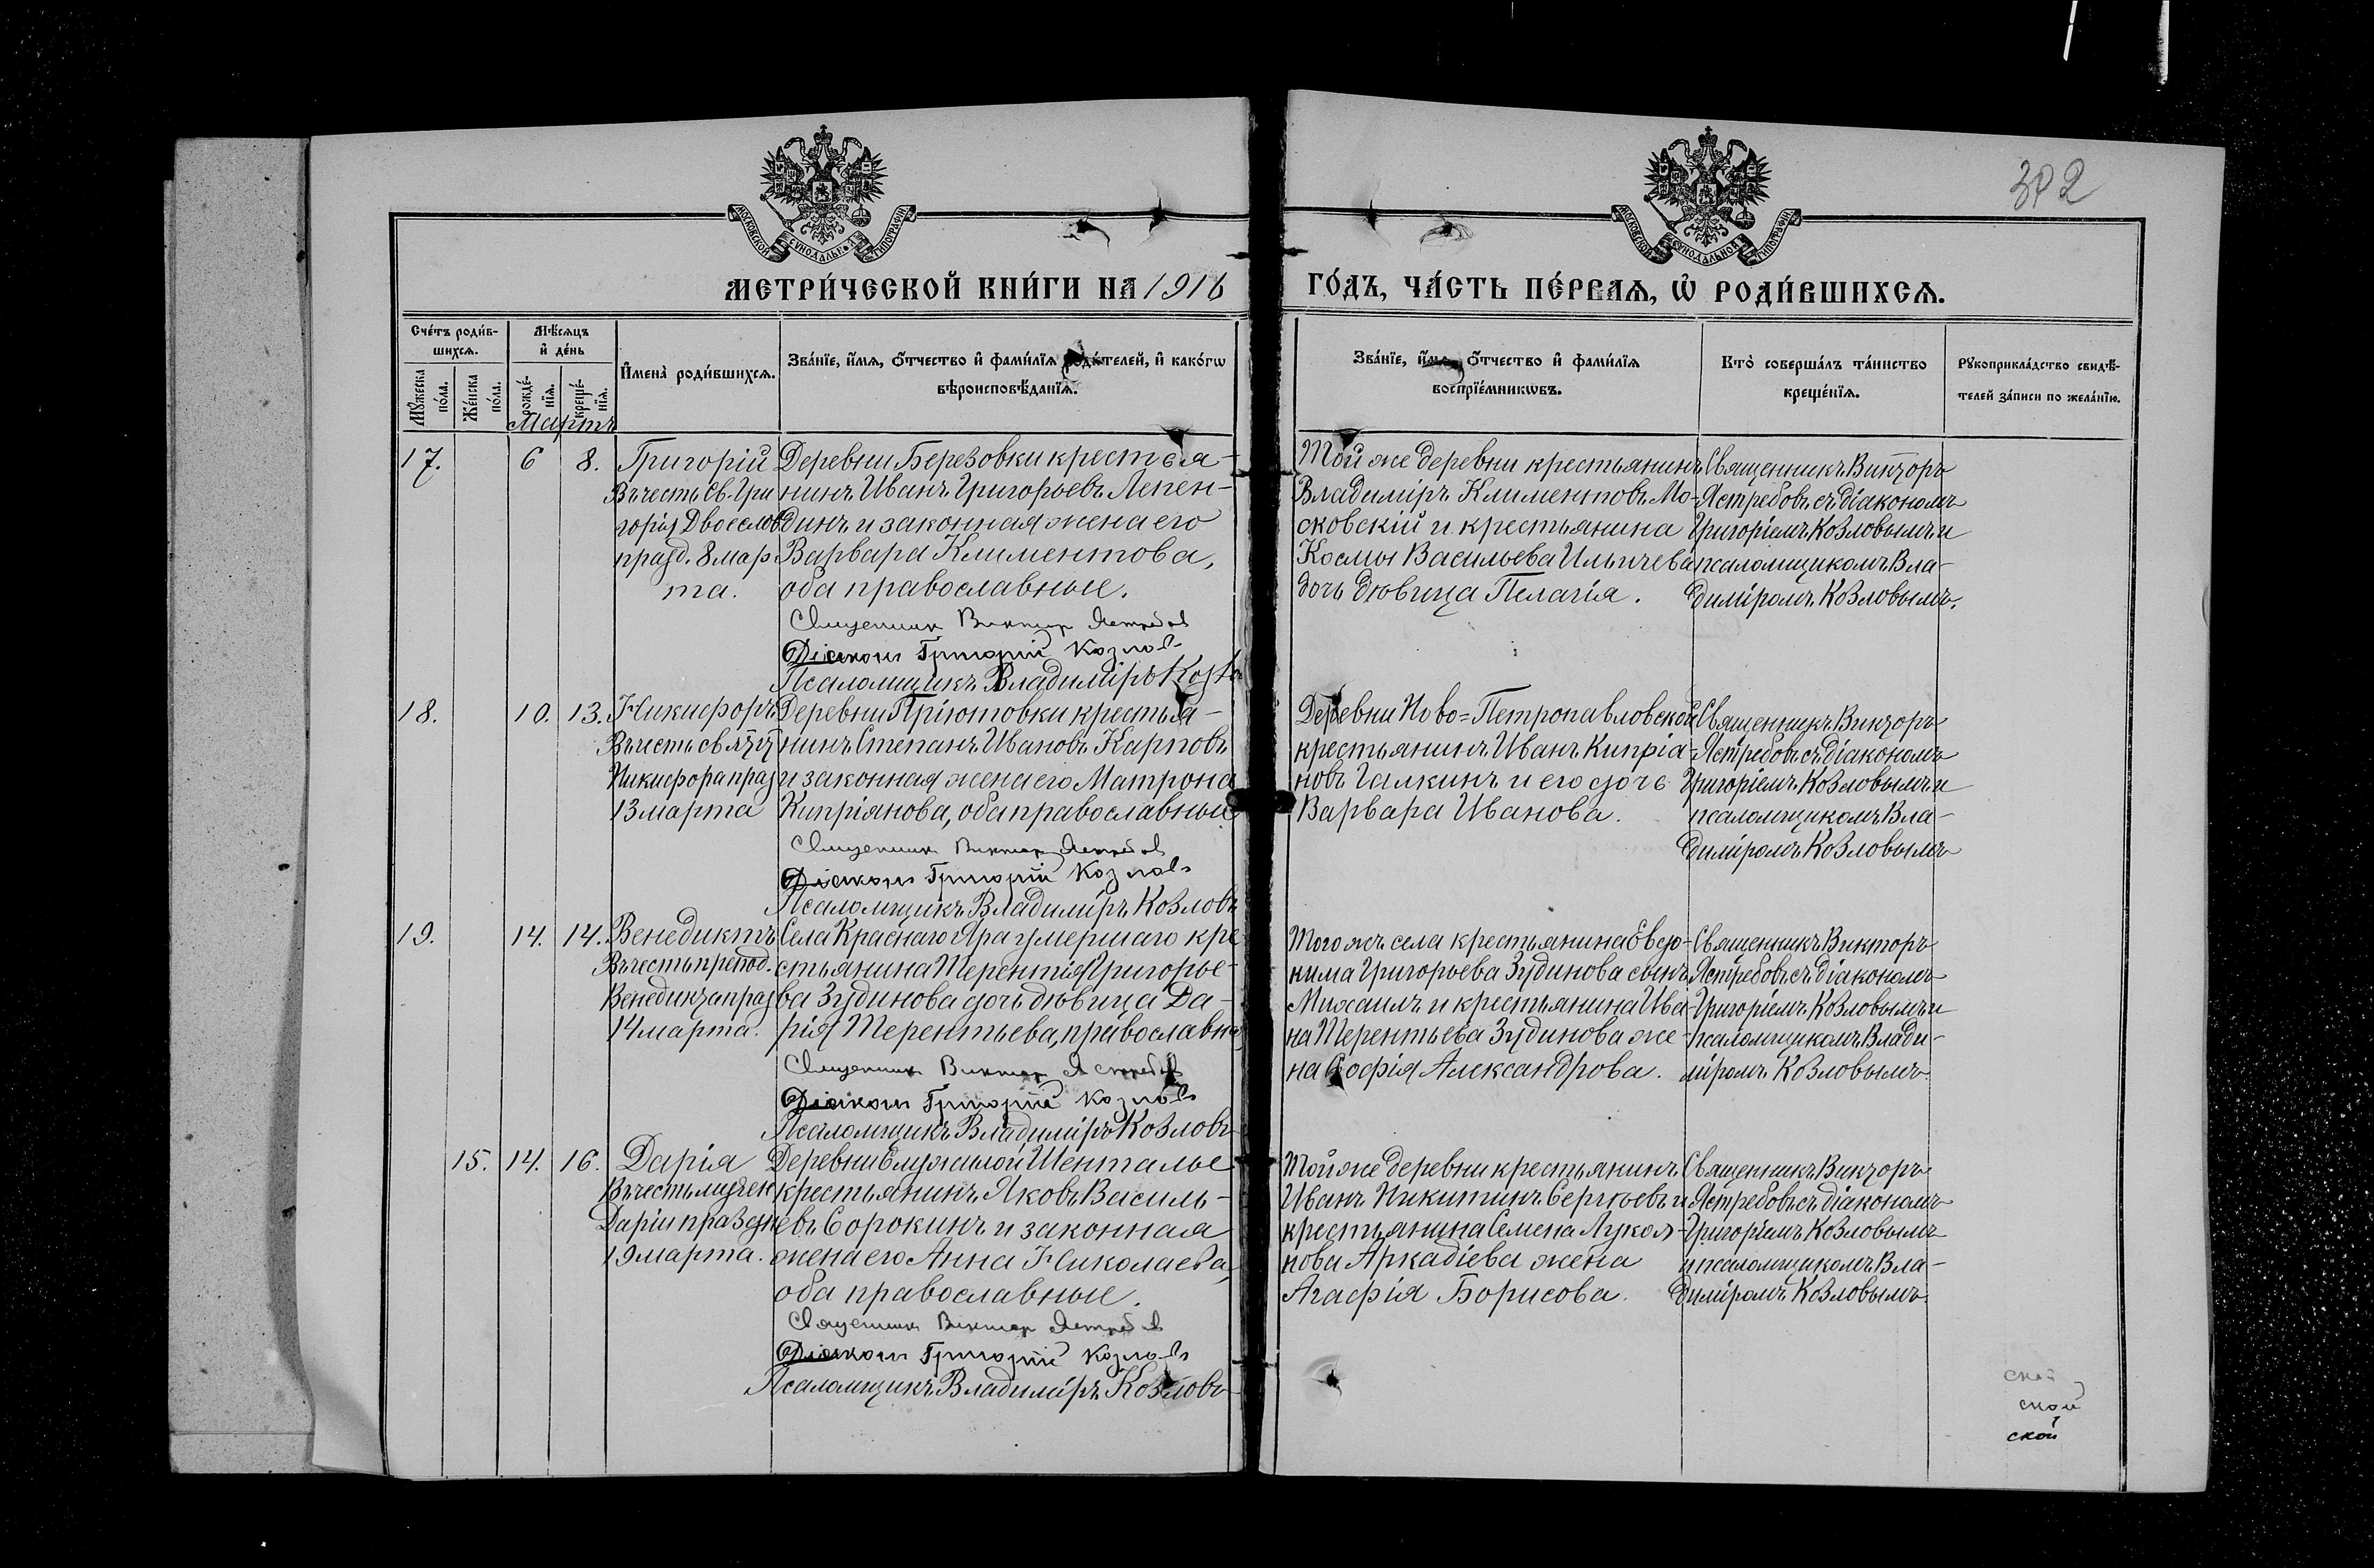 382
МОСКОВСКОЙ СѴНОДАЛЬНОЙ ТИПОГРАФІИ
МОСКОВСКОЙ СѴНОДАЛЬНОЙ ТИПОГРАФІИ
МЕТРИ́ЧЕСКОЙ КНИ́ГИ НА 1916
ГО́ДЪ, ЧА́СТЬ ПЕ́РВАѦ, Ѡ҆ РОДИ́ВШИХСѦ.
Сче́тъ роди́в-
шихсѧ.
Мѣ́сѧцъ
и҆ де́нь
И҆мена̀ роди́вшихсѧ.
Зва́нїе, и҆́мѧ, ѻ҆́тчество и҆ фами́лїѧ роди́телей, и҆ како́гѡ
вѣроисповѣ́данїѧ.
Мꙋ́жеска
по́ла.
Же́нска
по́ла.
рожде́-
нїѧ.
креще́-
нїѧ.
Мартъ
Зва́нїе, и҆́мѧ, ѻ҆́тчество и҆ фами́лїѧ
воспрїе́мникѡвъ.
Кто̀ соверша́лъ та́инство
креще́нїѧ.
Рꙋкоприкла́дство свидѣ́-
телей за́писи по жела́нїю.
17.
6
8.
Григорій
Въ честь Св. Гри
горія Двоеслов
празд. 8 мар
та.
Деревни Березовки крестья-
нинъ Иванъ Григорьевъ Лепен-
динъ и законная жена его
Варвара Климентова,
оба православные.
Священник Виктор Ястребов
Діаконъ Григорій Козловъ
Псаломщикъ Владиміръ Козлов
Той же деревни крестьянинъ
Владиміръ Климентовъ Мо-
сковскій и крестьянина
Космы Васильева Ильичева
дочь дѣвица Пелагія.
Священникъ Викторъ
Ястребовъ съ діакономъ
Григоріемъ Козловымъ и
псаломщикомъ Вла-
диміромъ Козловымъ.
18.
10.
13.
Никифоръ
Никифора праз
13 марта
Деревни Пріютовки крестья-
нинъ Степанъ Ивановъ Карповъ
и законная жена его Матрона
Кипріянова, оба православные
Священник Виктор Ястребов
Діаконъ Григорій Козловъ
Псаломщикъ Владиміръ Козловъ
Деревни Ново=Петропавловской
крестьянинъ Иванъ Кипріа-
новъ Галкинъ и его дочь
Варвара Иванова.
Священникъ Викторъ
Ястребовъ съ діакономъ
Григоріемъ Козловымъ и
псаломщикомъ Вла-
диміромъ Козловымъ
19.
14.
14.
Венедиктъ
Въ честь препод.
Венедикта праз
14 марта.
Села Краснаго Яра умершаго кре
стьянина Терентія Григорье-
ва Зудинова дочь дѣвица Да-
рія Терентьева, православна
Священник Виктор Ястребов
Діаконъ Григорій Козловъ
Псаломщикъ Владиміръ Козловъ
Того жъ села крестьянина Евдо-
кима Григорьева Зудинова сынъ
Михаилъ и крестьянина Ива-
на Терентьева Зудинова же-
на Софія Александрова.
Священникъ Викторъ
Ястребовъ съ діакономъ
Григоріемъ Козловымъ и
псаломщикомъ Влади-
міромъ Козловымъ.
15.
14.
16.
Дарія
Въ честь мучен
Даріи праздн
19 марта.
Деревни Елужилой Шенталы
крестьянинъ Яковъ Василь-
евъ Сорокинъ и законная
жена его Анна Николаева,
оба православные.
Священник Виктор Ястребов
Діаконъ Григорій Козловъ
Псаломщикъ Владиміръ Козловъ
Той же деревни крестьянинъ
Иванъ Никитинъ Сергѣевъ и
крестьянина Семена Лукоя-
нова Аркадіева жена
Агафія Борисова.
Священникъ Викторъ
Ястребовъ съ діакономъ
Григоріемъ Козловымъ
и псаломщикомъ Вла-
диміромъ Козловымъ.
ской
ской
ской